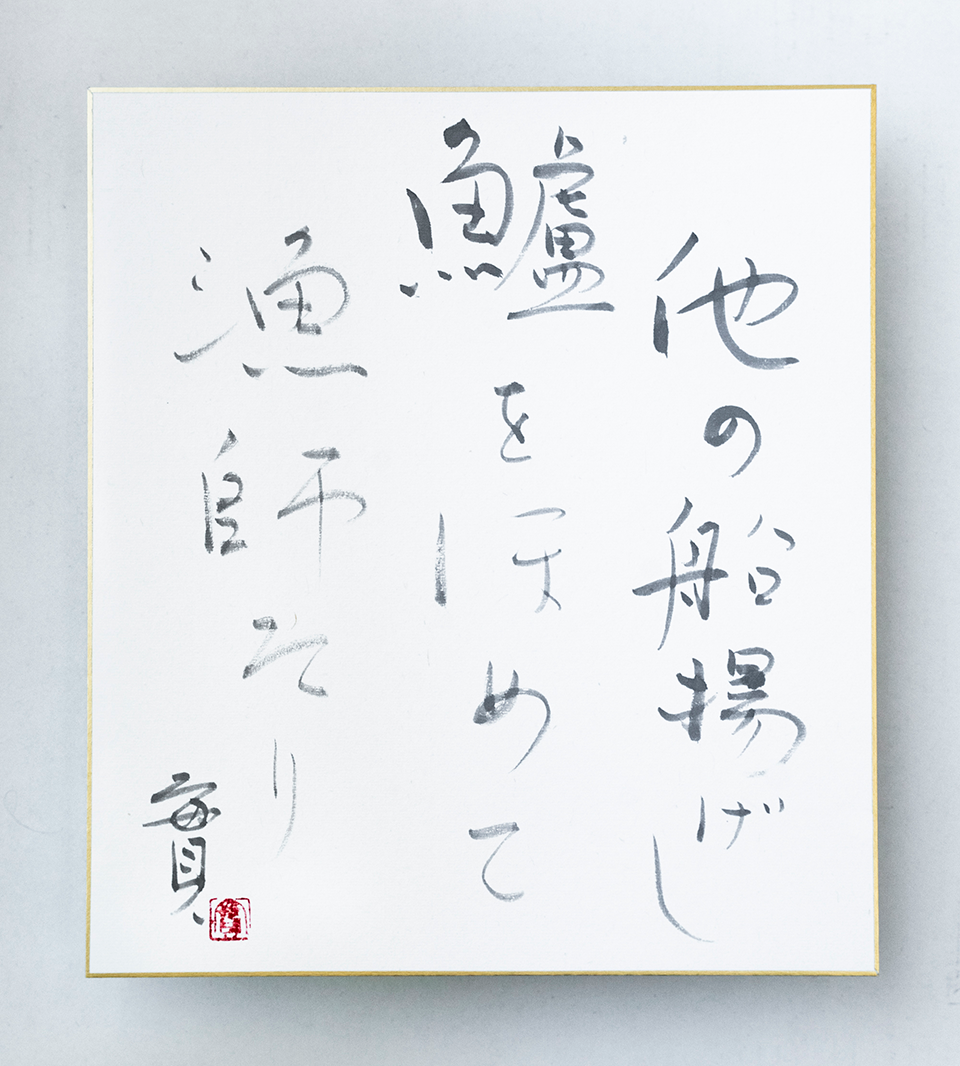 他の船揚げし
鱸をほめて
漁師をり
實